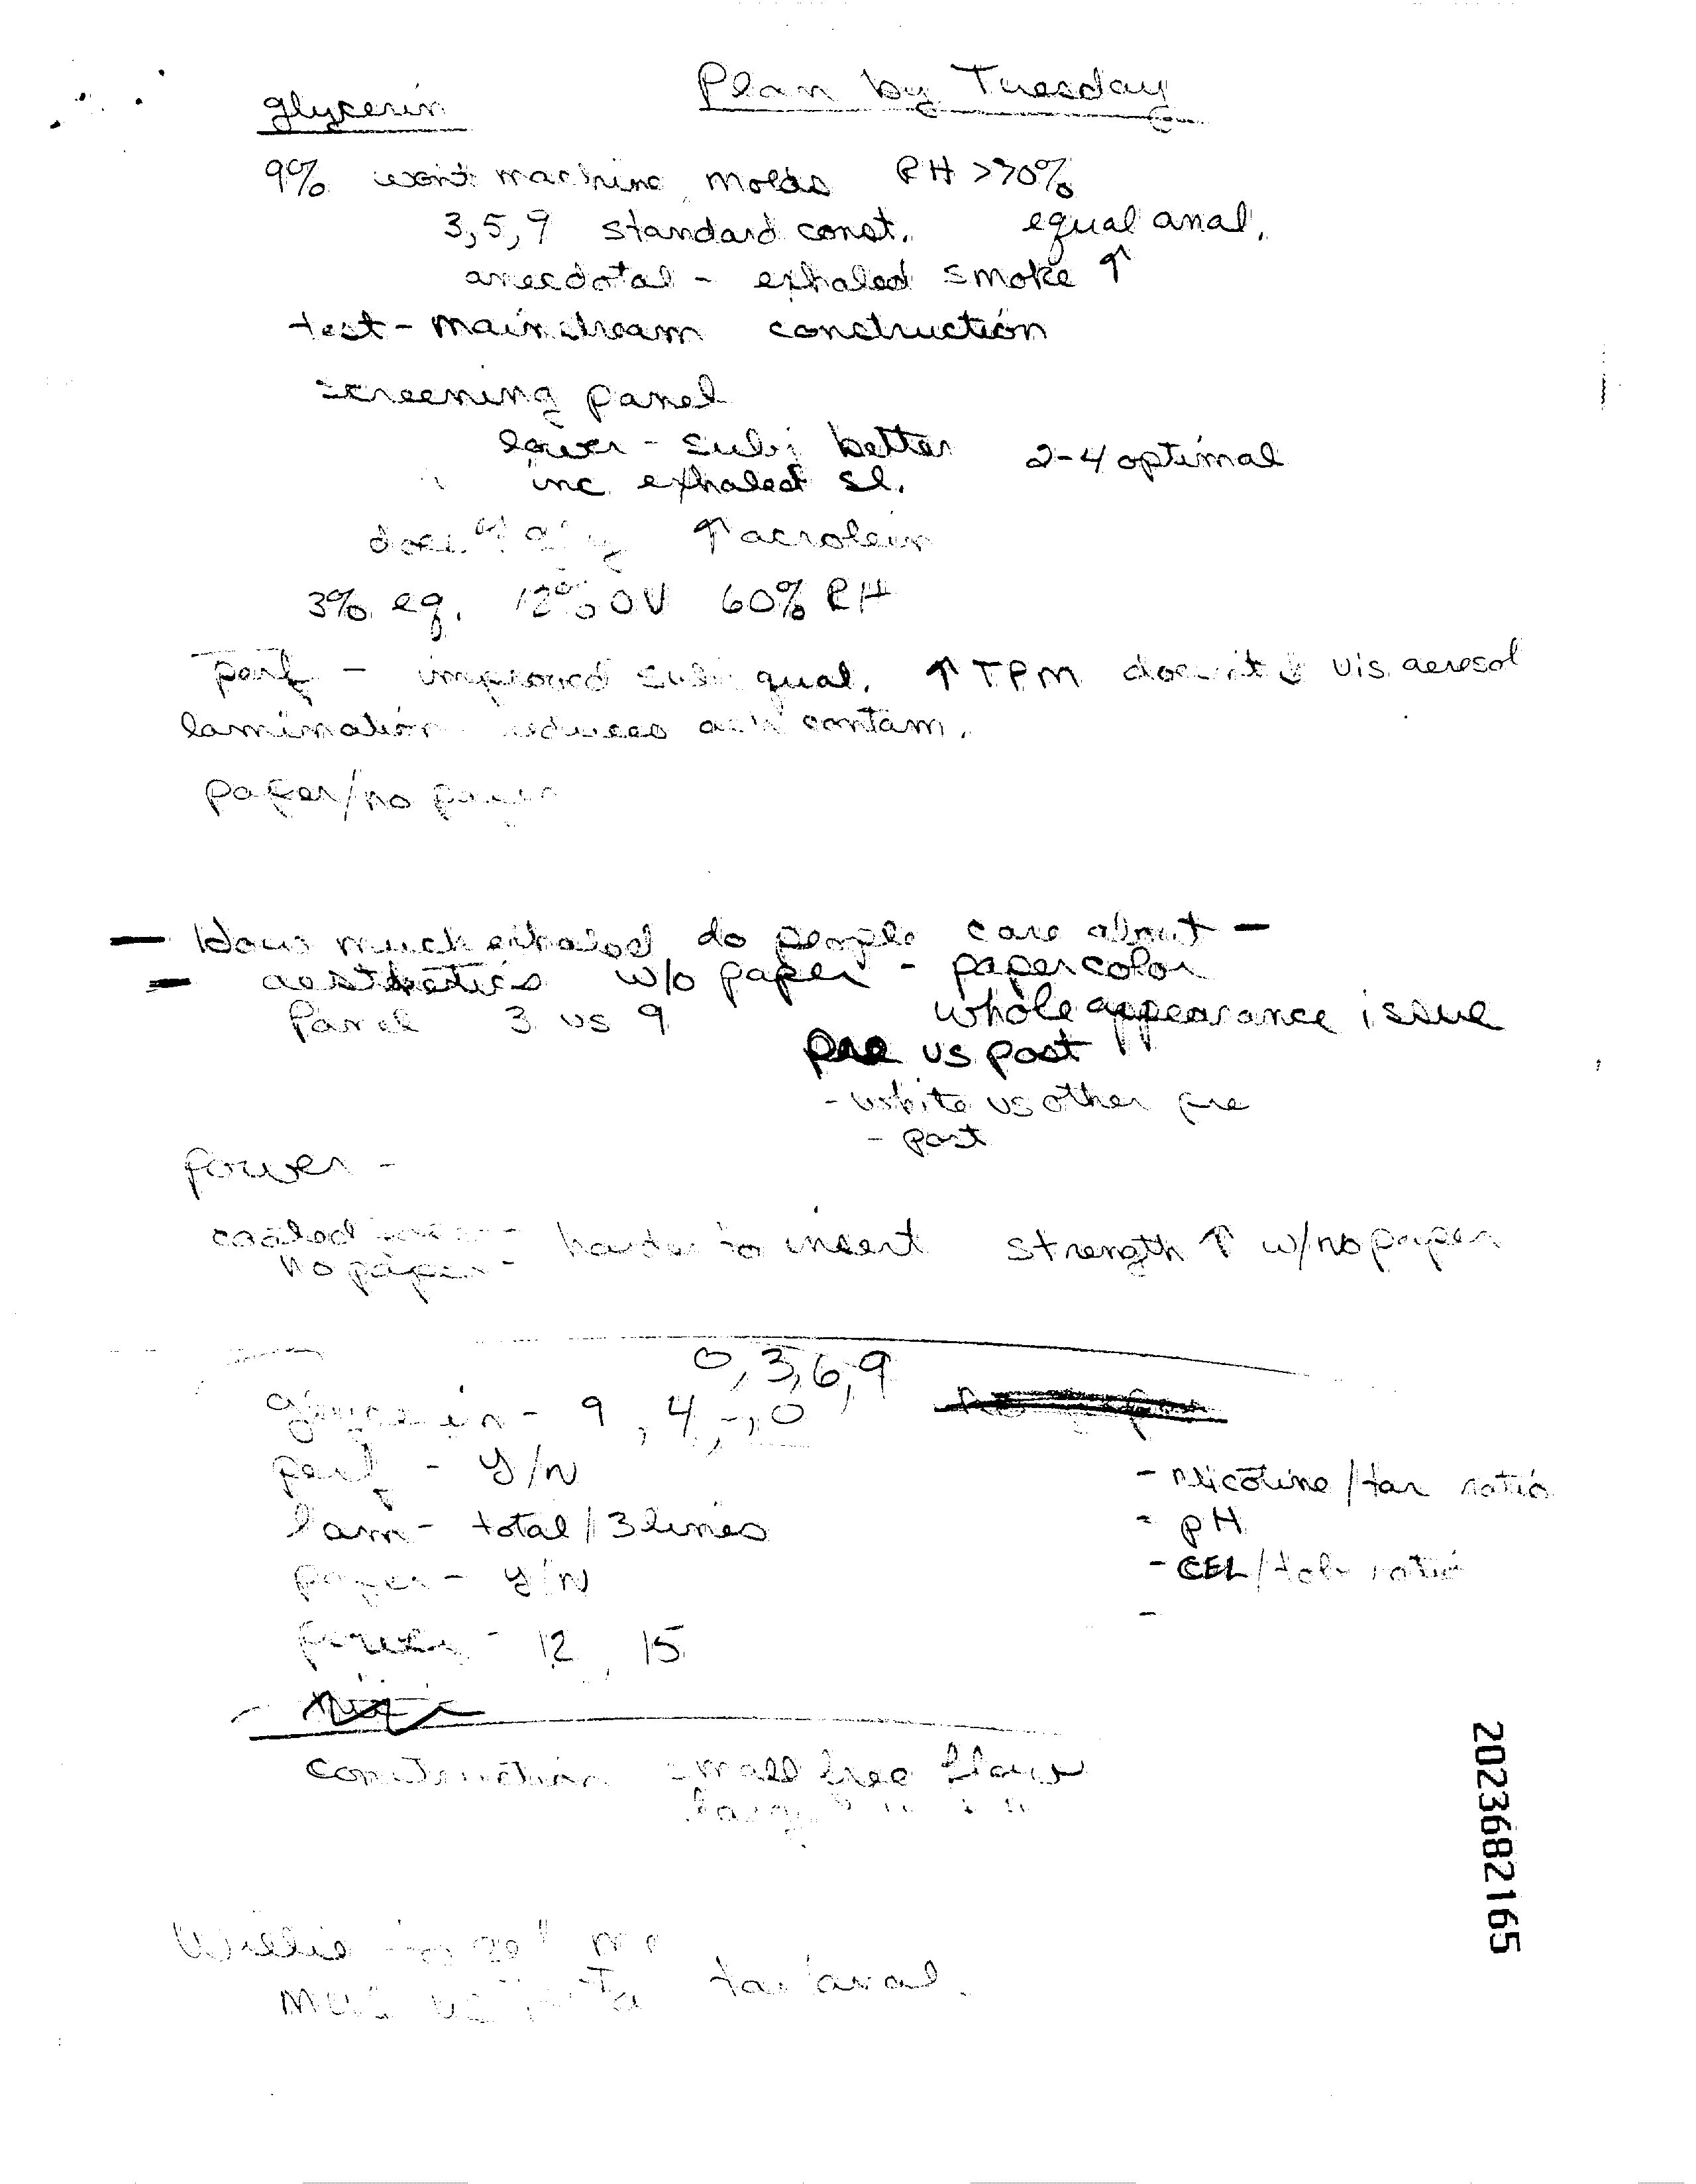 Plan by Tuesday
glycerin
9% won't machine, molds RH >70%
3,5,9 standard const. equal anal.
anecdotal - exhaled smoke ↑
test - mainstream construction
screening panel
lower - subj better 2-4 optimal
inc exhaled sl.
↑ acrolein
3% eg. 12% OV 60% RH
perf - improved subj qual. ↑ TPM doesn't vis. aerosol
lamination reduces contam.
paper/no paper
- How much exhaled do people care about -
- aesthetics w/o paper - paper color
Panel 3 vs 9 whole appearance issue
pre vs post
- white vs other pre
- post
power -
coated harder to insert strength ↑ w/no paper
no paper -
0,3,6,9
glycerin - 9, 4, 0
perf - Y/N
- Nicotine/tar ratio
lam - total/3 lines
- pH
paper - Y/N
- CEL/tob ratio
power - 12, 15
-
construction small free flow
large " " " "
Willie
2023682165